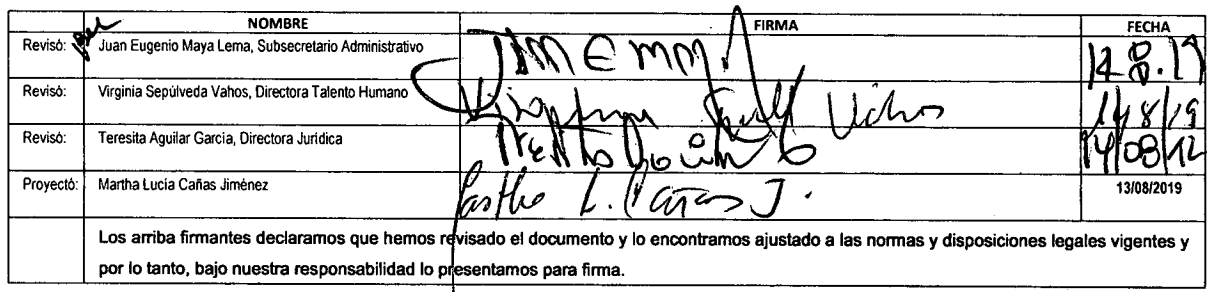 NOMBRE FIRMA FECHA
Revisó: Juan Eugenio Maya Lema, Subsecretario Administrativo 14.8.19
Revisó: Virginia Sepúlveda Vahos, Directora Talento Humano Vahos 14/8/19
Revisó: Teresita Aguilar García, Directora Jurídica
Proyectó: Martha Lucía Cañas Jiménez L. Cañas J. 13/08/2019
Los arriba firmantes declaramos que hemos revisado el documento y lo encontramos ajustado a las normas y disposiciones legales vigentes y
por lo tanto, bajo nuestra responsabilidad lo presentamos para firma.